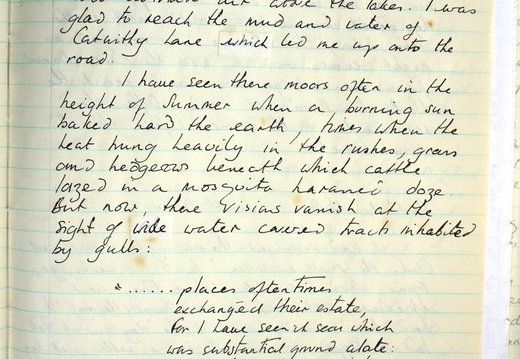 above the lakes. I was
glad to reach the mud and water of
Catwithy Lane which led me up onto the
road.
I have seen these moors often in the
height of Summer when a burning sun
baked hard the earth, times when the
heat hung heavily in the rushes, grass
and hedgerows beneath which cattle
lazed in a mosquito haranc doze.
But now, these visions vanish at the
sight of wide water covered tracts inhabited
by gulls:
"...... places oftentimes
exchanged their estate,
for I have seen it sea which
was substantial ground alate: